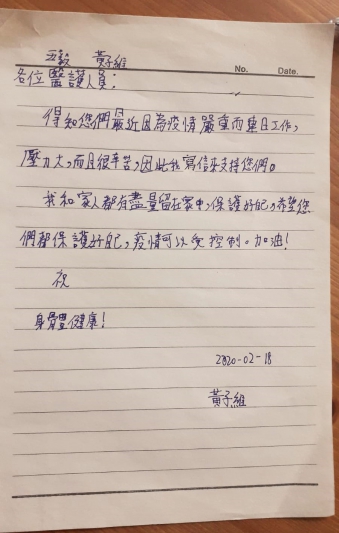 五毅 黃子維
No. Date.
各位醫護人員：
得知您們最近因為疫情嚴重而整日工作，
壓力大，而且很辛苦，因此我寫信來支持您們。
我和家人都有盡量留在家中，保護好自己，希望您
們都保護好自己，疫情可以受控制。加油！
祝
身體健康！
2020-02-18
黃子維